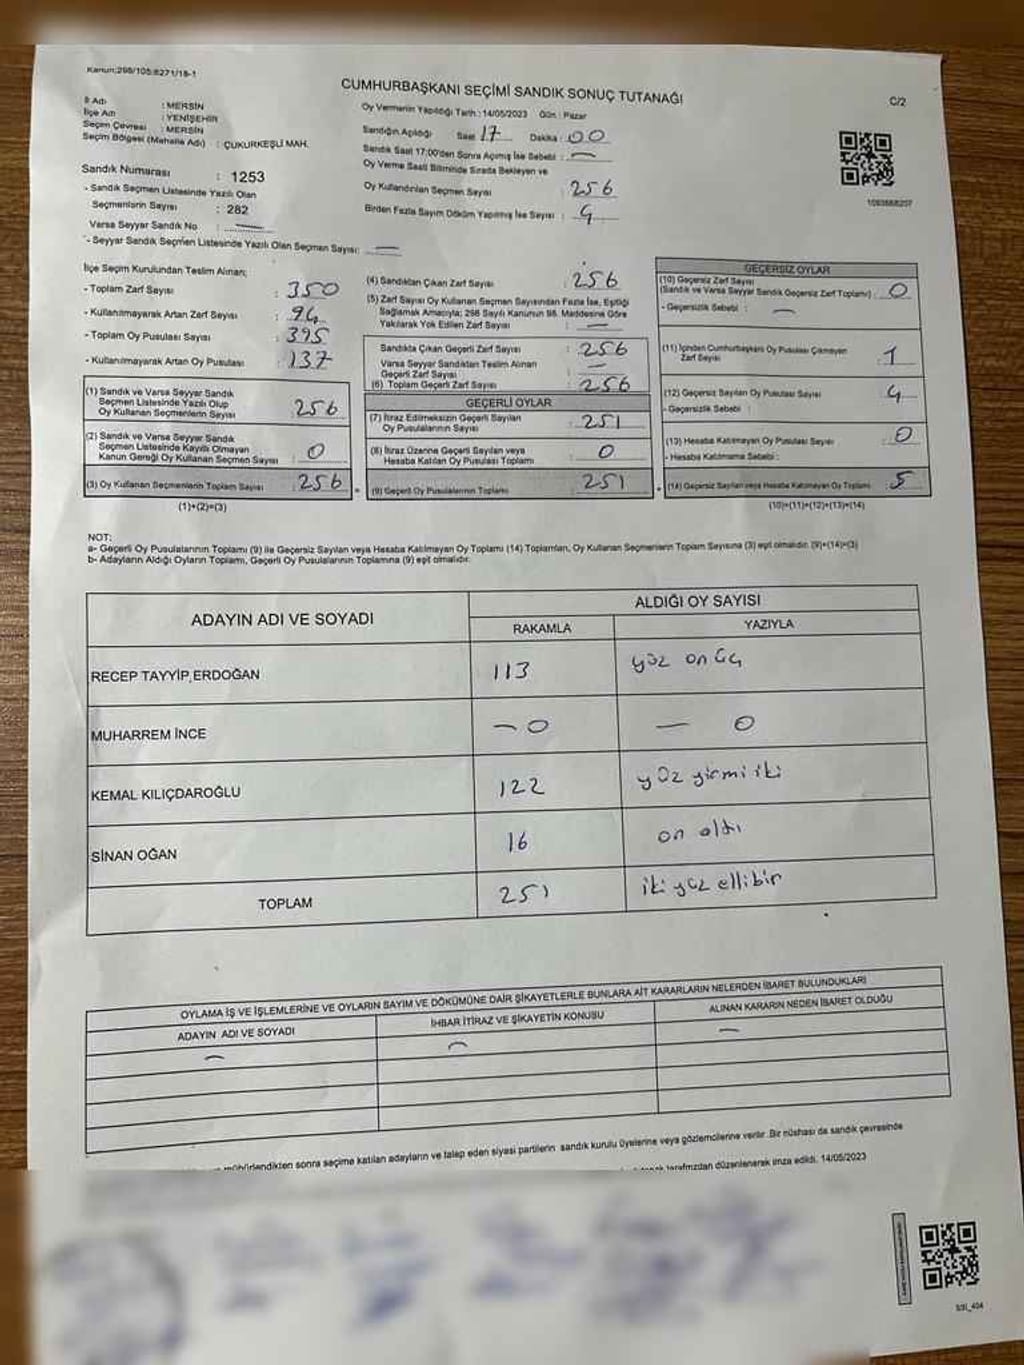 Kanun:298/105:6271/18-1
CUMHURBAŞKANI SEÇİMİ SANDIK SONUÇ TUTANAĞI
C/2
İl Adı : MERSİN
İlçe Adı : YENİŞEHİR
Seçim Çevresi : MERSİN
Seçim Bölgesi (Mahalle Adı) : ÇUKURKEŞLİ MAH.
Sandık Numarası : 1253
- Sandık Seçmen Listesinde Yazılı Olan
Seçmenlerin Sayısı : 282
Varsa Seyyar Sandık No : —
- Seyyar Sandık Seçmen Listesinde Yazılı Olan Seçmen Sayısı: —
Oy Vermenin Yapıldığı Tarih : 14/05/2023 Gün : Pazar
Sandığın Açıldığı Saat 17 Dakika : 00
Sandık Saat 17:00'den Sonra Açılmış İse Sebebi : —
Oy Verme Saati Bitiminde Sırada Bekleyen ve
Oy Kullandırılan Seçmen Sayısı : 256
Birden Fazla Sayım Döküm Yapılmış İse Sayısı :
İlçe Seçim Kurulundan Teslim Alınan;
- Toplam Zarf Sayısı : 350
- Kullanılmayarak Artan Zarf Sayısı : 94
- Toplam Oy Pusulası Sayısı : 395
- Kullanılmayarak Artan Oy Pusulası : 137
(1) Sandık ve Varsa Seyyar Sandık
Seçmen Listesinde Yazılı Olup
Oy Kullanan Seçmenlerin Sayısı 256
(2) Sandık ve Varsa Seyyar Sandık
Seçmen Listesinde Kayıtlı Olmayan
Kanun Gereği Oy Kullanan Seçmen Sayısı 0
(3) Oy Kullanan Seçmenlerin Toplam Sayısı : 256
(1)+(2)=(3)
(4) Sandıktan Çıkan Zarf Sayısı : 256
(5) Zarf Sayısı Oy Kullanan Seçmen Sayısından Fazla İse, Eşitliği
Sağlamak Amacıyla; 298 Sayılı Kanunun 98. Maddesine Göre
Yakılarak Yok Edilen Zarf Sayısı : —
Sandıkta Çıkan Geçerli Zarf Sayısı : 256
Varsa Seyyar Sandıktan Teslim Alınan
Geçerli Zarf Sayısı : —
(6) Toplam Geçerli Zarf Sayısı : 256
GEÇERLİ OYLAR
(7) İtiraz Edilmeksizin Geçerli Sayılan
Oy Pusulalarının Sayısı : 251
(8) İtiraz Üzerine Geçerli Sayılan veya
Hesaba Katılan Oy Pusulası Toplamı : 0
(9) Geçerli Oy Pusulalarının Toplamı : 251
GEÇERSİZ OYLAR
(10) Geçersiz Zarf Sayısı
(Sandık ve Varsa Seyyar Sandık Geçersiz Zarf Toplamı) : 0
- Geçersizlik Sebebi : —
(11) İçinden Cumhurbaşkanı Oy Pusulası Çıkmayan
Zarf Sayısı : 1
(12) Geçersiz Sayılan Oy Pusulası Sayısı : 4
- Geçersizlik Sebebi :
(13) Hesaba Katılmayan Oy Pusulası Sayısı : 0
- Hesaba Katılmama Sebebi :
(14) Geçersiz Sayılan veya Hesaba Katılmayan Oy Toplamı : 5
(10)+(11)+(12)+(13)=(14)
NOT:
a- Geçerli Oy Pusulalarının Toplamı (9) ile Geçersiz Sayılan veya Hesaba Katılmayan Oy Toplamı (14) Toplamları, Oy Kullanan Seçmenlerin Toplam Sayısına (3) eşit olmalıdır. (9)+(14)=(3)
b- Adayların Aldığı Oyların Toplamı, Geçerli Oy Pusulalarının Toplamına (9) eşit olmalıdır.
ADAYIN ADI VE SOYADI ALDIĞI OY SAYISI
RAKAMLA YAZIYLA
RECEP TAYYİP ERDOĞAN 113 yüz on üç
MUHARREM İNCE — 0 — 0
KEMAL KILIÇDAROĞLU 122 yüz yirmi iki
SİNAN OĞAN 16 on altı
TOPLAM 251 iki yüz ellibir
OYLAMA İŞ VE İŞLEMLERİNE VE OYLARIN SAYIM VE DÖKÜMÜNE DAİR ŞİKAYETLERLE BUNLARA AİT KARARLARIN NELERDEN İBARET BULUNDUKLARI
ADAYIN ADI VE SOYADI İHBAR İTİRAZ VE ŞİKAYETİN KONUSU ALINAN KARARIN NEDEN İBARET OLDUĞU
— — —
mühürlendikten sonra seçime katılan adayların ve talep eden siyasi partilerin sandık kurulu üyelerine veya gözlemcilerine verilir. Bir nüshası da sandık çevresinde
tarafımızdan düzenlenerek imza edildi. 14/05/2023